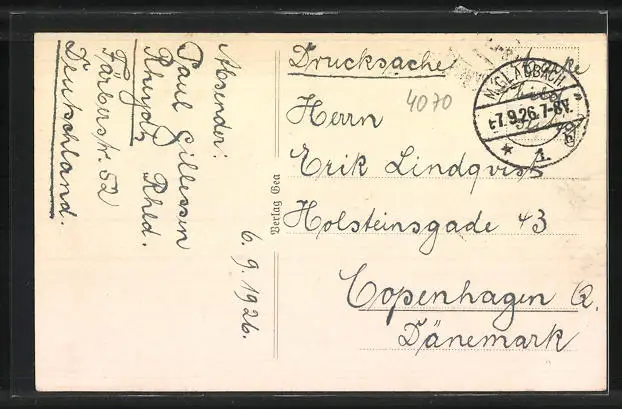 Absender:
Paul Gillessen
Rheydt Rhld.
Färberstr. 52
Deutschland.
6.9.1926.
Verlag Gea
Drucksache
4070
M.GLADBACH
-7.9.26.7-8V.
* 1.
Herrn
Erik Lindqvist
Holsteinsgade 43
Copenhagen Ø.
Dänemark